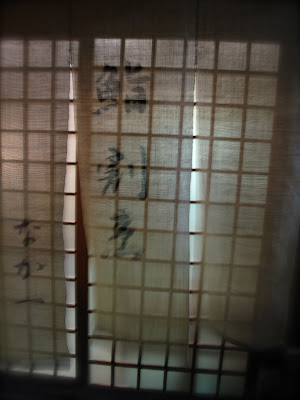 鮨割烹
なか一